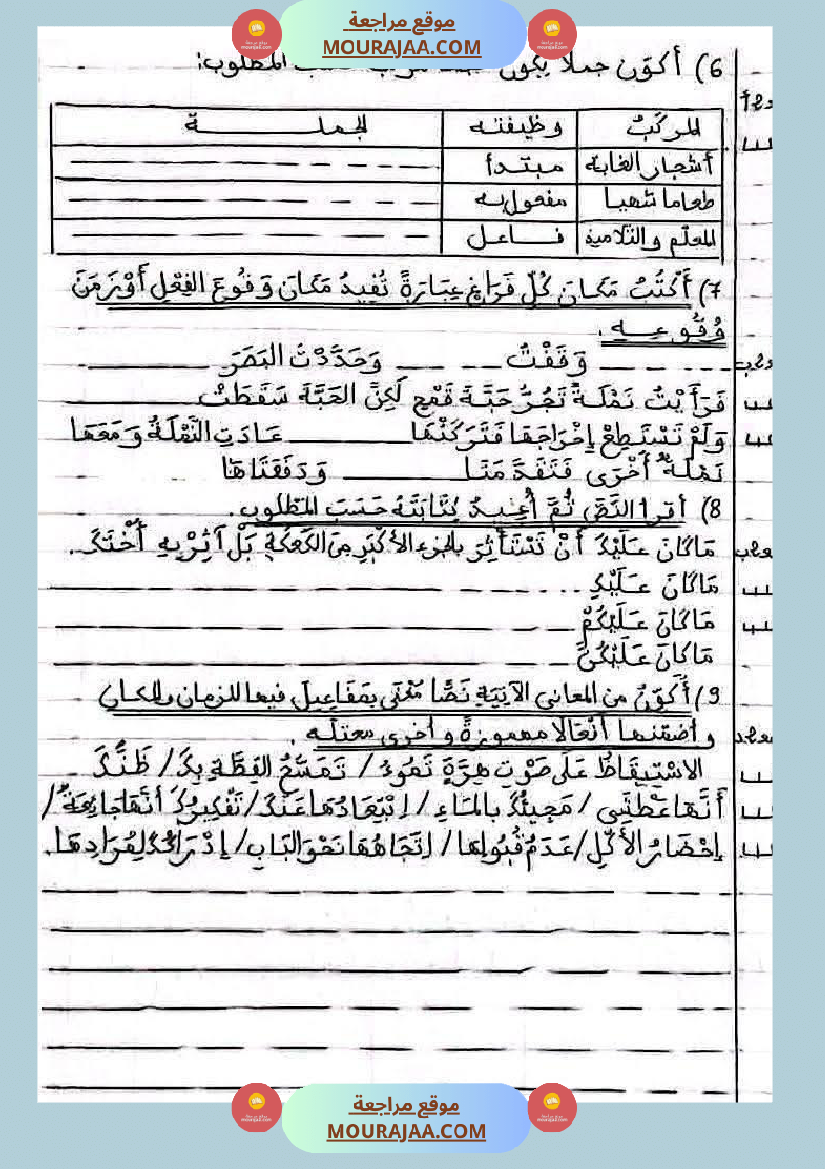 موقع مراجعة
MOURAJAA.COM
6) أكوّن جملا يكون المطلوب:
المركّب وظيفته الجملة
أشجار الغابة مبتدأ
طعاما شهيا مفعول به
المعلّم والتلاميذ فاعل
7) أَكْتُبُ مَكَانَ كُلِّ فَرَاغٍ عِبَارَةً تُفِيدُ مَكَانَ وَقُوعَ الفِعْلِ أَوْ زَمَنَ
وُقُوعِهِ.
وَقَفْتُ وَحَدَّدْتُ البَصَرَ
فَرَأَيْتُ نَمْلَةً تَجُرُّ حَبَّةَ قَمْحٍ لَكِنَّ الحَبَّةَ سَقَطَتْ
وَلَمْ تَسْتَطِعْ إِخْرَاجَهَا فَتَرَكَتْهَا عَادَتِ النَّمْلَةُ وَمَعَهَا
نَمْلَةٌ أُخْرَى فَتَقَدَّمَتَا وَدَفَعَتَاهَا
8) أقرأ النَّصَّ ثُمَّ أُعِيدُ كِتَابَتَهُ حَسَبَ المَطْلُوبِ.
مَا كَانَ عَلَيْكَ أَنْ تَسْتَأْثِرَ بالجزء الأَكْبَرِ مِنَ الكَعْكَةِ بَلْ آثِرْ بِهِ أُخْتَكَ.
مَا كَانَ عَلَيْكِ
مَا كَانَ عَلَيْكُمْ
مَا كَانَ عَلَيْكُنَّ
9) أُكَوِّنُ من المعاني الآتِيَةِ نَصًّا مُغْتَنٍ بِمَفَاعِيلَ فيها للزمان والمكان
وأضمّنها أَفْعَالا مهموزةً وأخرى معتلّه.
الاسْتِيقَاظُ عَلَى صَوْتِ هِرَّةٍ تَمُوءُ / تَمَسُّحُ القِطَّةِ بِكَ / ظَنُّكَ
أَنَّهَا عَطْشَى / مَجِيئُكَ بالمَاءِ / اِبْتِعَادُهَا عَنْكَ / تَفْكِيرُكَ أَنَّهَا جَائِعَةٌ /
إِحْضَارُ الأَكْلِ / عَدَمُ قُبُولِهَا / اِتِّجَاهُهَا نَحْوَ البَابِ / إِدْرَاكُكَ لِمُرَادِهَا.
موقع مراجعة
MOURAJAA.COM